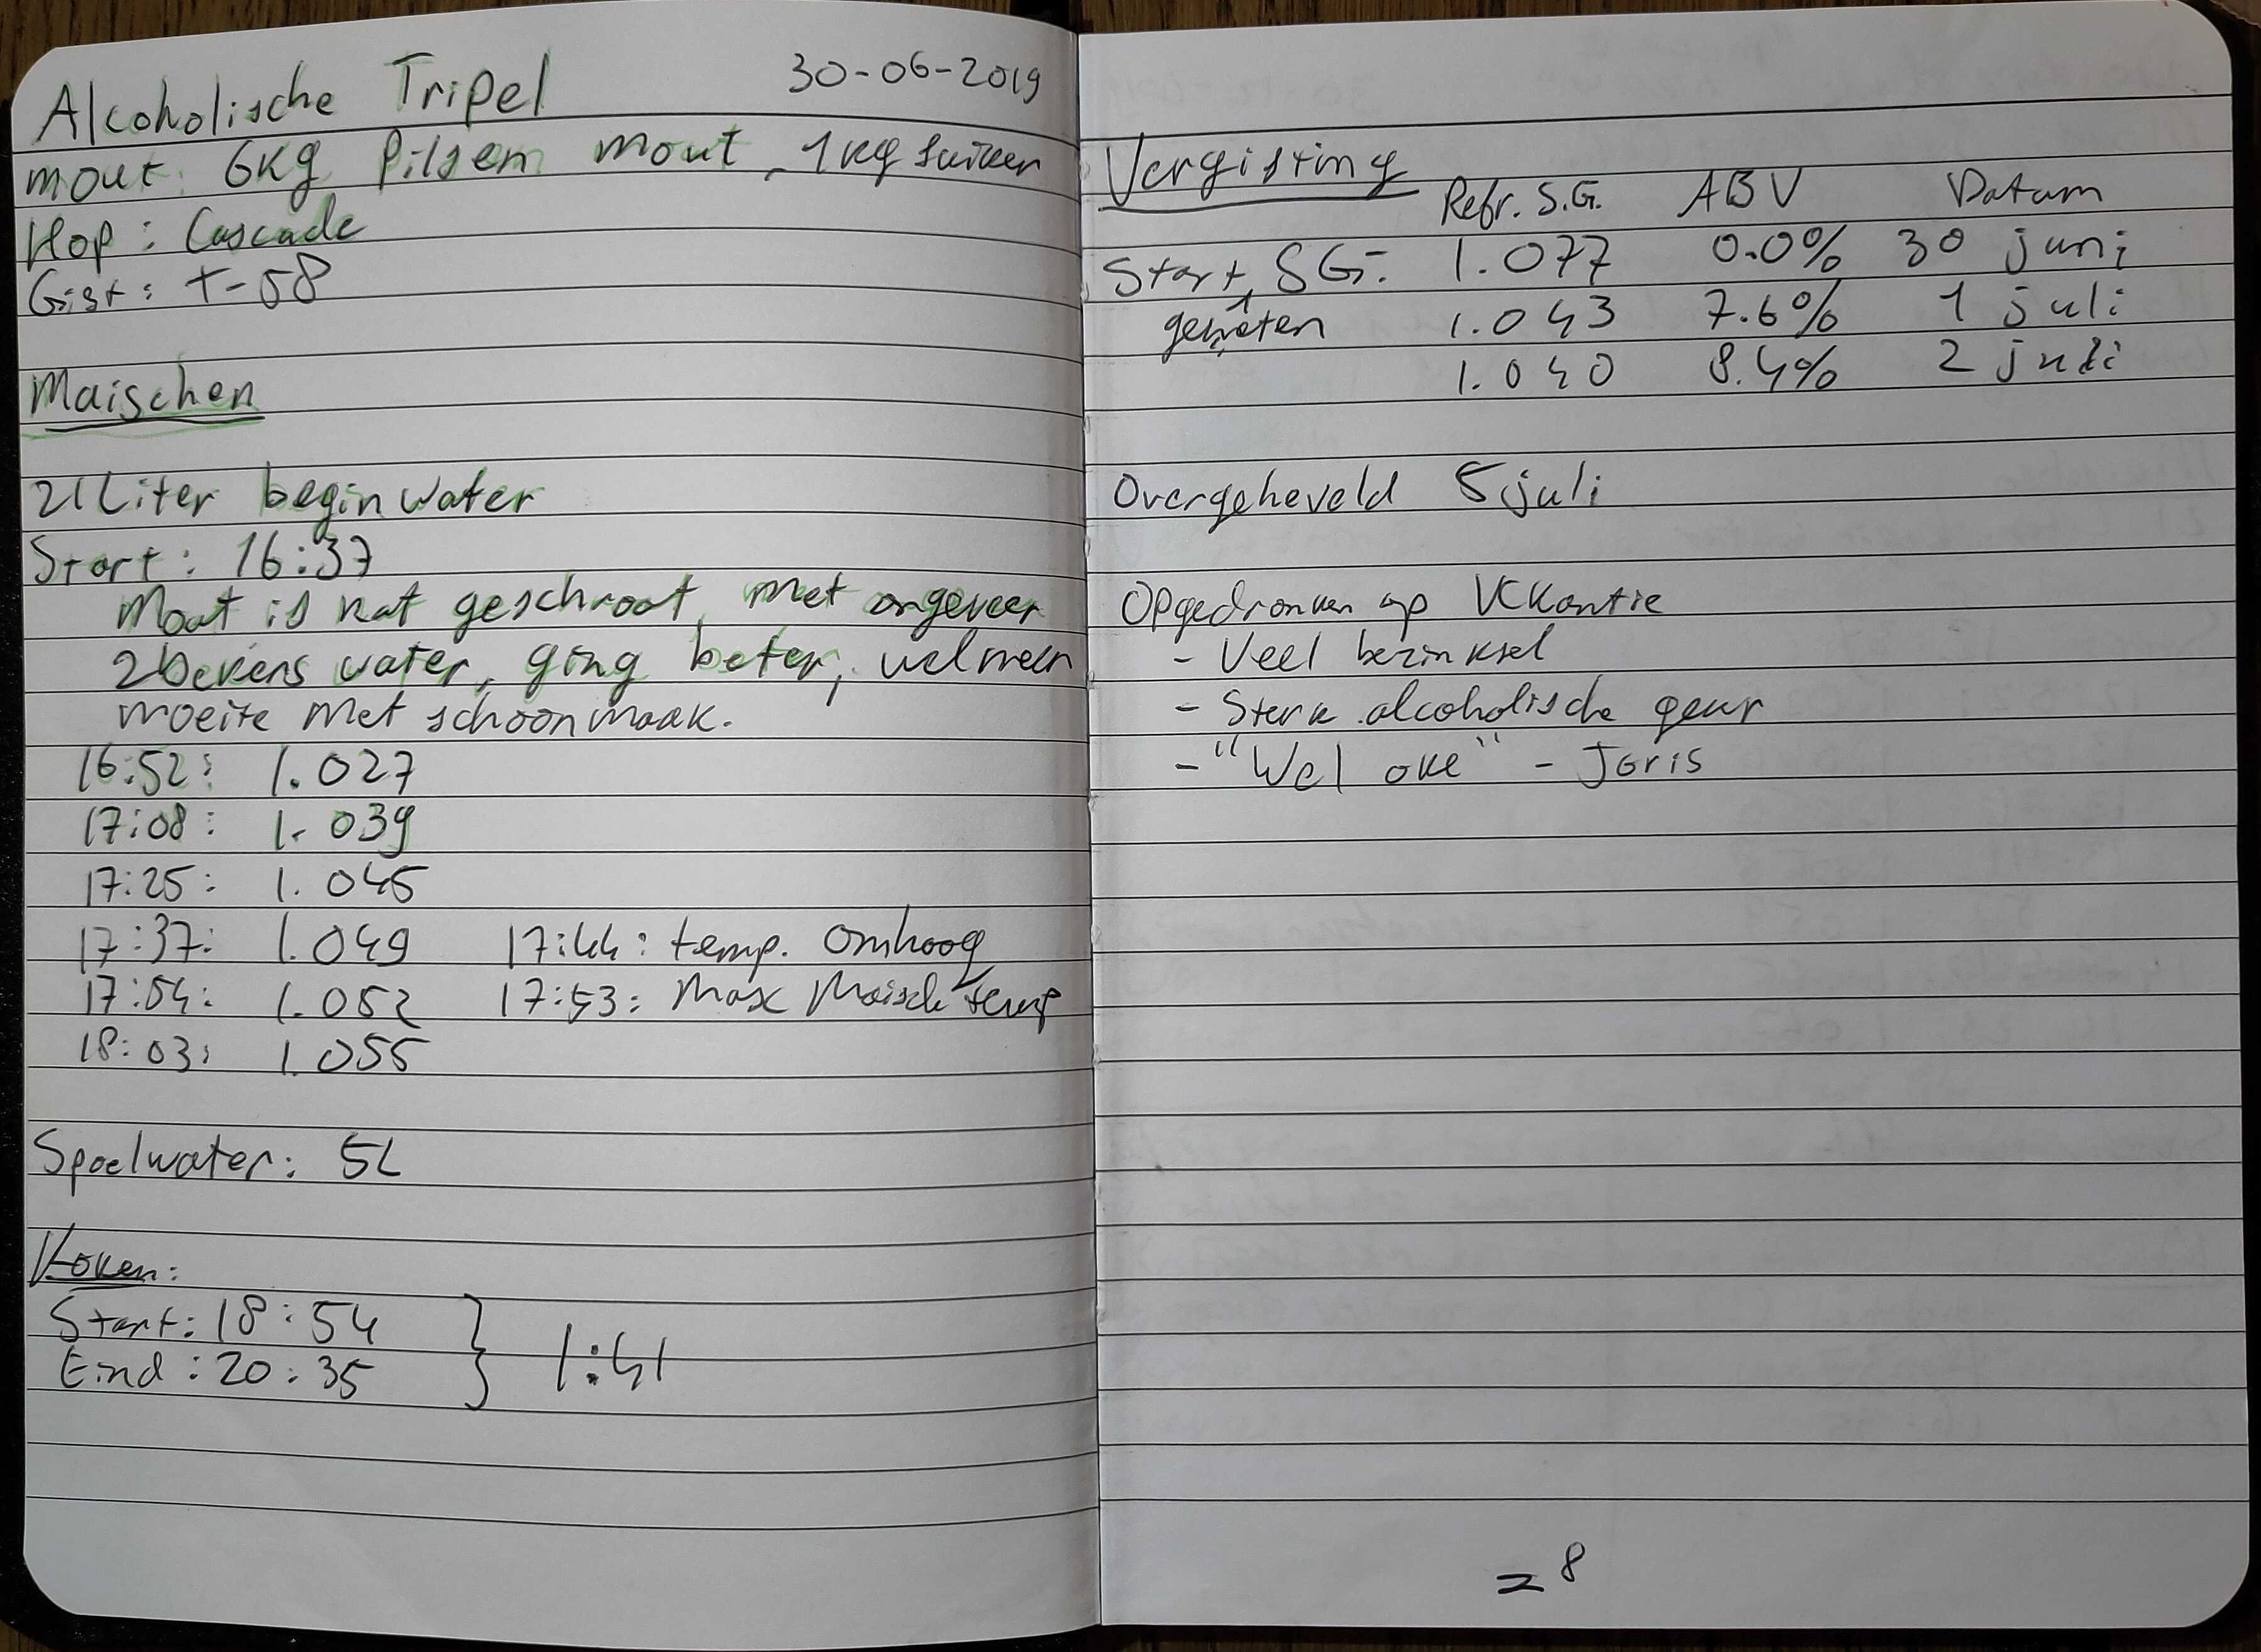 Alcoholische Tripel 30-06-2019
mout: 6kg Pilsen mout, 1kg suiker
Hop: Cascade
Gist: T-58
Maischen
21 Liter begin water
Start: 16:37
Mout is nat geschroot, met ongeveer
2 bekers water, ging beter, wel meer
moeite met schoonmaak.
16:52: 1.027
17:08: 1.039
17:25: 1.045
17:37: 1.049 17:44: temp. omhoog
17:54: 1.052 17:53: Max Maisch temp
18:03: 1.055
Spoelwater: 5L
Koken:
Start: 18:54
Eind: 20:35 } 1:41
Vergisting
Refr. S.G. ABV Datum
Start SG: 1.077 0.0% 30 juni
gemeten 1.043 7.6% 1 juli
1.040 8.4% 2 juli
Overgeheveld 5 juli
Opgedronken op Vakantie
- Veel bezinksel
- Sterk alcoholische geur
- "Wel oke" - Joris
= 8